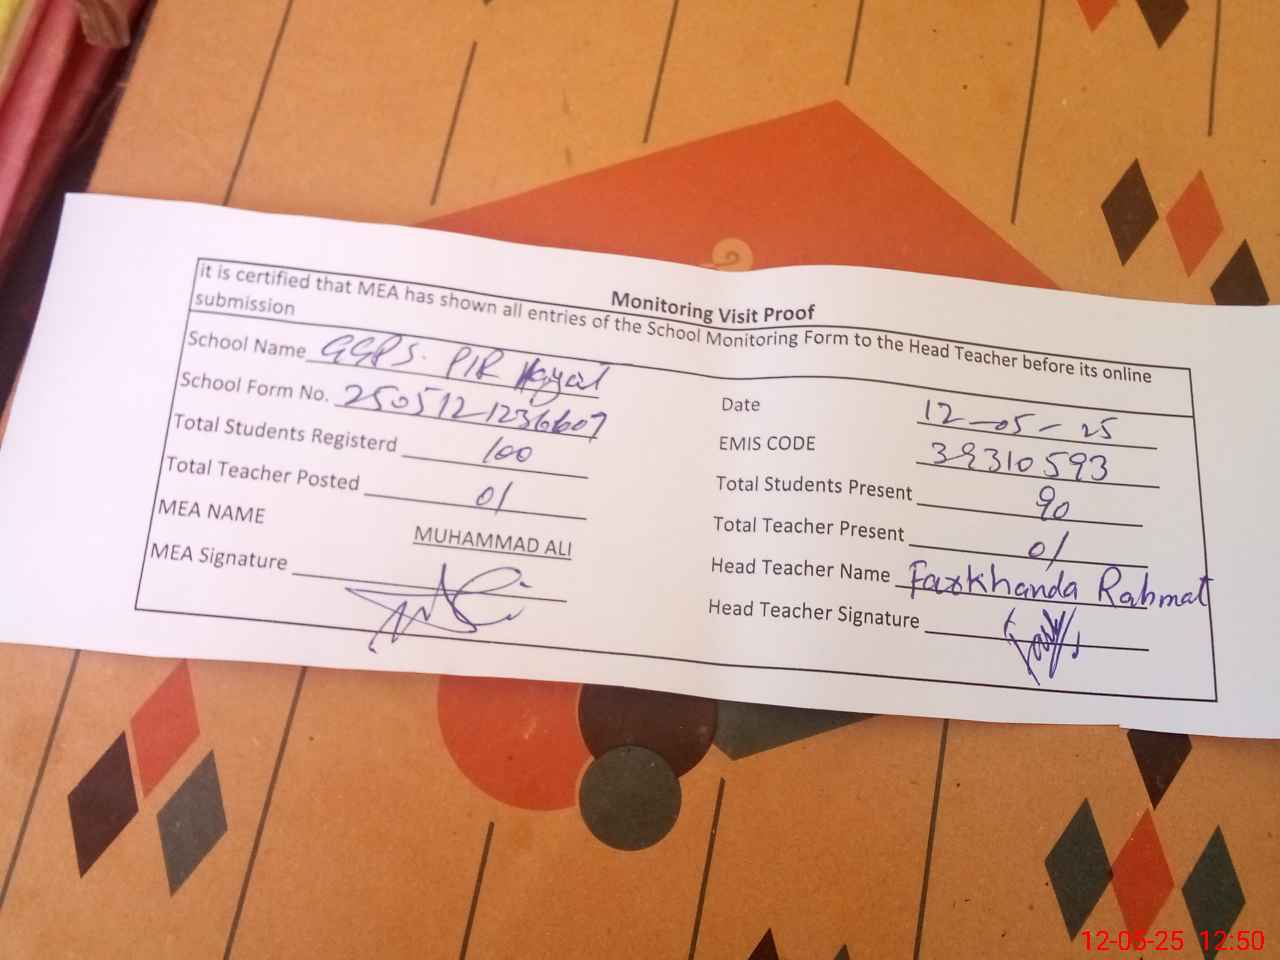 Monitoring Visit Proof
it is certified that MEA has shown all entries of the School Monitoring Form to the Head Teacher before its online
submission
School Name GGPS. PIR Hayat
School Form No. 2505121236607
Total Students Registerd 100
Total Teacher Posted 01
MEA NAME MUHAMMAD ALI
MEA Signature
Date 12-05-25
EMIS CODE 39310593
Total Students Present 90
Total Teacher Present 01
Head Teacher Name Farkhanda Rahmat
Head Teacher Signature
12-05-25 12:50